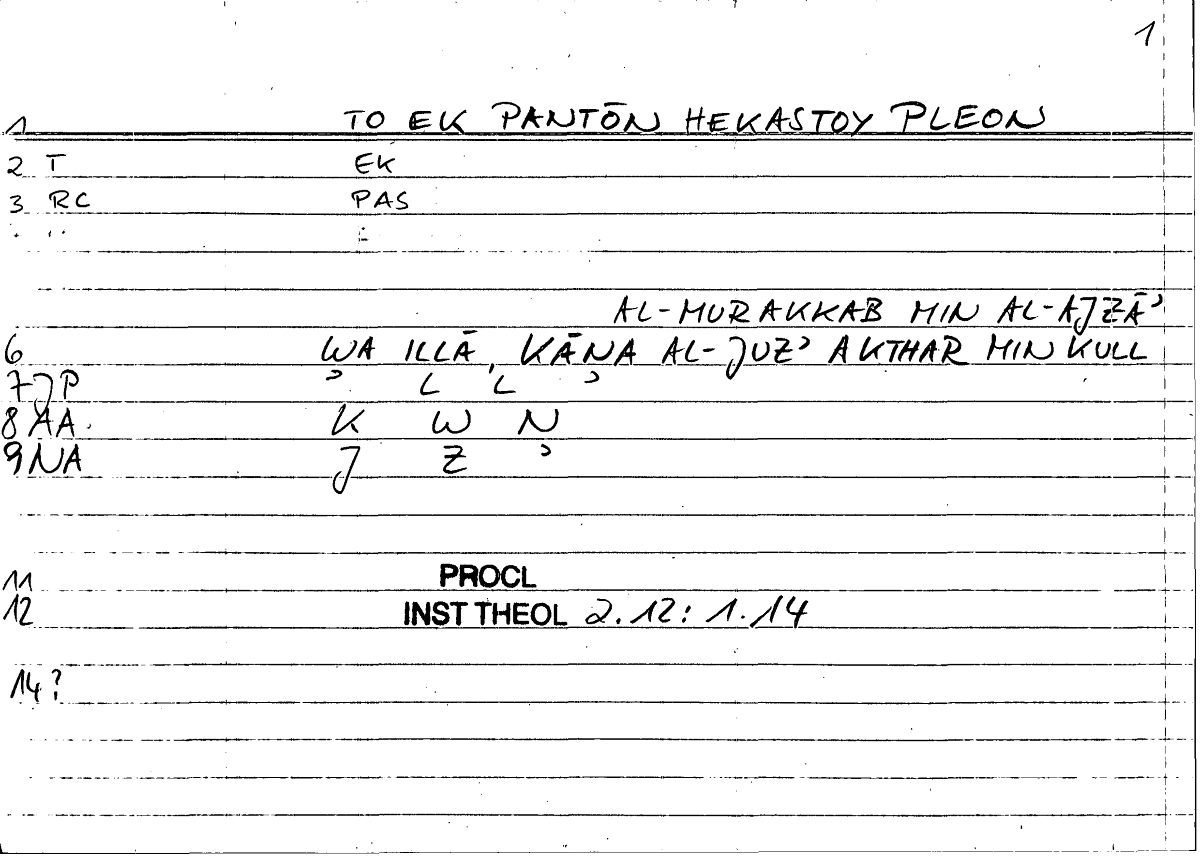 1
1 TO EK PANTŌN HEKASTOY PLEON
2 T EK
3 RC PAS
AL-MURAKKAB MIN AL-AJZĀʾ
6 WA ILLĀ, KĀNA AL-JUZʾ AKTHAR MIN KULL
7 JP ʾ L L ʾ
8 AA. K W N
9 NA J Z ʾ
11 PROCL
12 INST THEOL 2.12: 1.14
14?